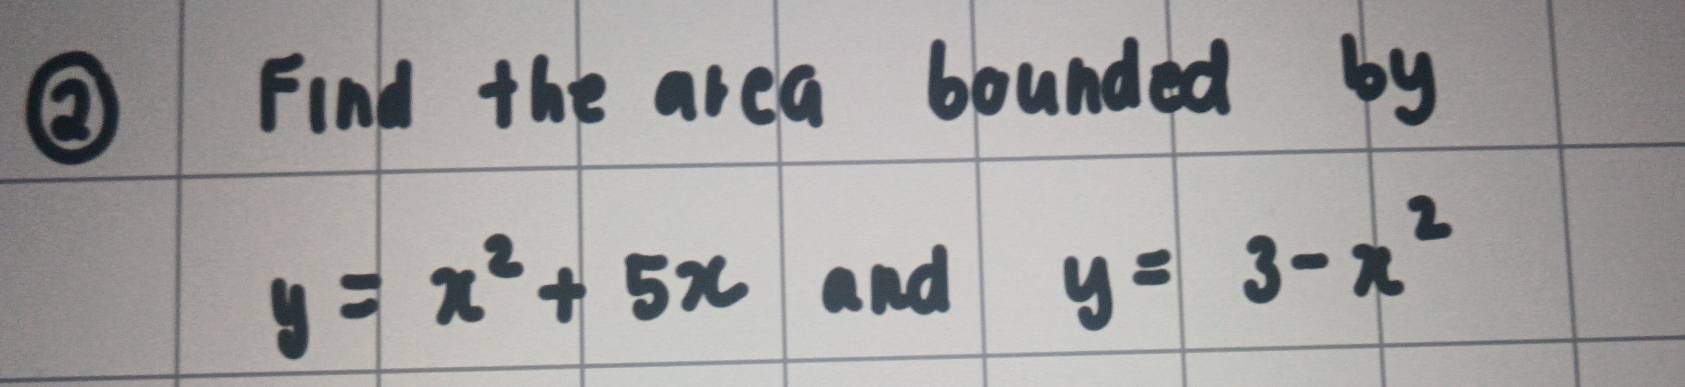 ② Find the area bounded by
y = x² + 5x and y = 3 - x²